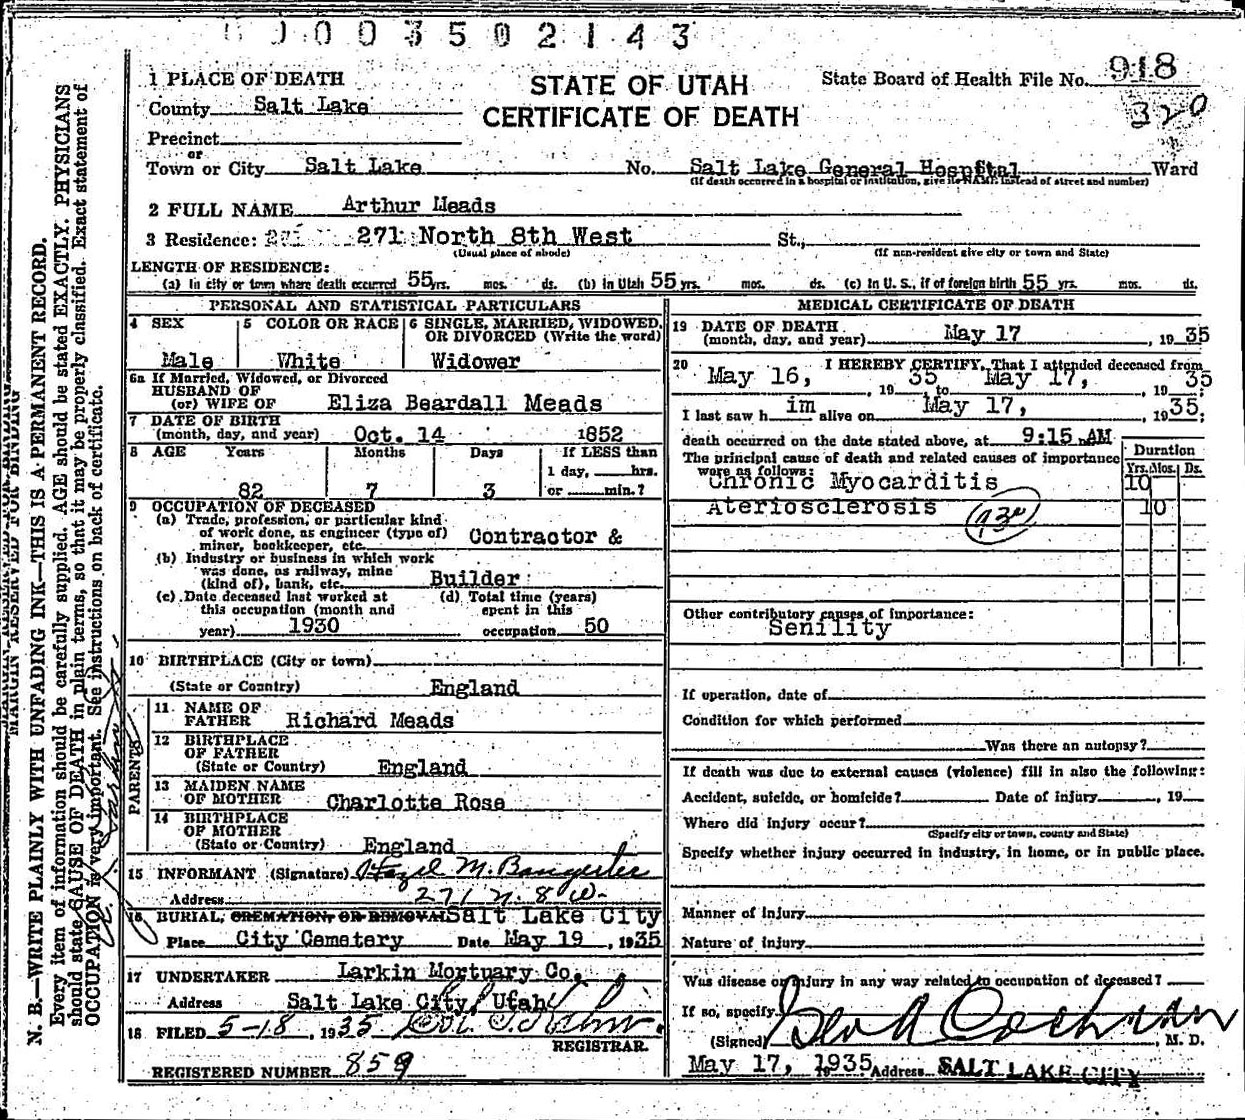 0003502143
1 PLACE OF DEATH
STATE OF UTAH
CERTIFICATE OF DEATH
State Board of Health File No. 918
320
County Salt Lake
Precinct
or
Town or City Salt Lake No. Salt Lake General Hospital Ward
(If death occurred in a hospital or institution, give its NAME instead of street and number)
2 FULL NAME Arthur Meads
3 Residence: 271 North 8th West St.,
(Usual place of abode) (If non-resident give city or town and State)
LENGTH OF RESIDENCE:
(a) In city or town where death occurred 55 yrs. mos. ds. (b) In Utah 55 yrs. mos. ds. (c) In U. S., if of foreign birth 55 yrs. mos. ds.
PERSONAL AND STATISTICAL PARTICULARS
4 SEX
Male
5 COLOR OR RACE
White
6 SINGLE, MARRIED, WIDOWED,
OR DIVORCED (Write the word)
Widower
6a If Married, Widowed, or Divorced
HUSBAND OF
(or) WIFE OF Eliza Beardall Meads
7 DATE OF BIRTH
(month, day, and year) Oct. 14 1852
8 AGE Years Months Days If LESS than
1 day, hrs.
82 7 3 or min.?
9 OCCUPATION OF DECEASED
(a) Trade, profession, or particular kind
of work done, as engineer (type of)
miner, bookkeeper, etc. Contractor &
(b) Industry or business in which work
was done, as railway, mine
(kind of), bank, etc. Builder
(c) Date deceased last worked at
this occupation (month and
year) 1930
(d) Total time (years)
spent in this
occupation 50
10 BIRTHPLACE (City or town)
(State or Country) England
PARENTS
11 NAME OF
FATHER Richard Meads
12 BIRTHPLACE
OF FATHER
(State or Country) England
13 MAIDEN NAME
OF MOTHER Charlotte Rose
14 BIRTHPLACE
OF MOTHER
(State or Country) England
15 INFORMANT (Signature) Hazel M. Bangerter
Address 271 N. 8 W.
16 BURIAL, CREMATION, OR REMOVAL Salt Lake City
Place City Cemetery Date May 19, 1935
17 UNDERTAKER Larkin Mortuary Co.
Address Salt Lake City, Utah
18 FILED 5-18, 1935
REGISTRAR.
REGISTERED NUMBER 859
MEDICAL CERTIFICATE OF DEATH
19 DATE OF DEATH
(month, day, and year) May 17, 1935
20 I HEREBY CERTIFY, That I attended deceased from
May 16, 1935 to May 17, 1935
I last saw him alive on May 17, 1935;
death occurred on the date stated above, at 9:15 AM
The principal cause of death and related causes of importance
were as follows:
Duration
Yrs. Mos. Ds.
Chronic Myocarditis 10
Ateriosclerosis 10
Other contributory causes of importance:
Senility
If operation, date of
Condition for which performed
Was there an autopsy?
If death was due to external causes (violence) fill in also the following:
Accident, suicide, or homicide? Date of injury , 19
Where did injury occur?
(Specify city or town, county and State)
Specify whether injury occurred in industry, in home, or in public place.
Manner of Injury
Nature of injury
Was disease or injury in any way related to occupation of deceased?
If so, specify
(Signed) Geo A Cochran, M. D.
May 17, 1935 Address SALT LAKE CITY
MARGIN RESERVED FOR BINDING
N. B.—WRITE PLAINLY WITH UNFADING INK—THIS IS A PERMANENT RECORD.
Every item of information should be carefully supplied. AGE should be stated EXACTLY. PHYSICIANS
should state CAUSE OF DEATH in plain terms, so that it may be properly classified. Exact statement of
OCCUPATION is very important. See instructions on back of certificate.